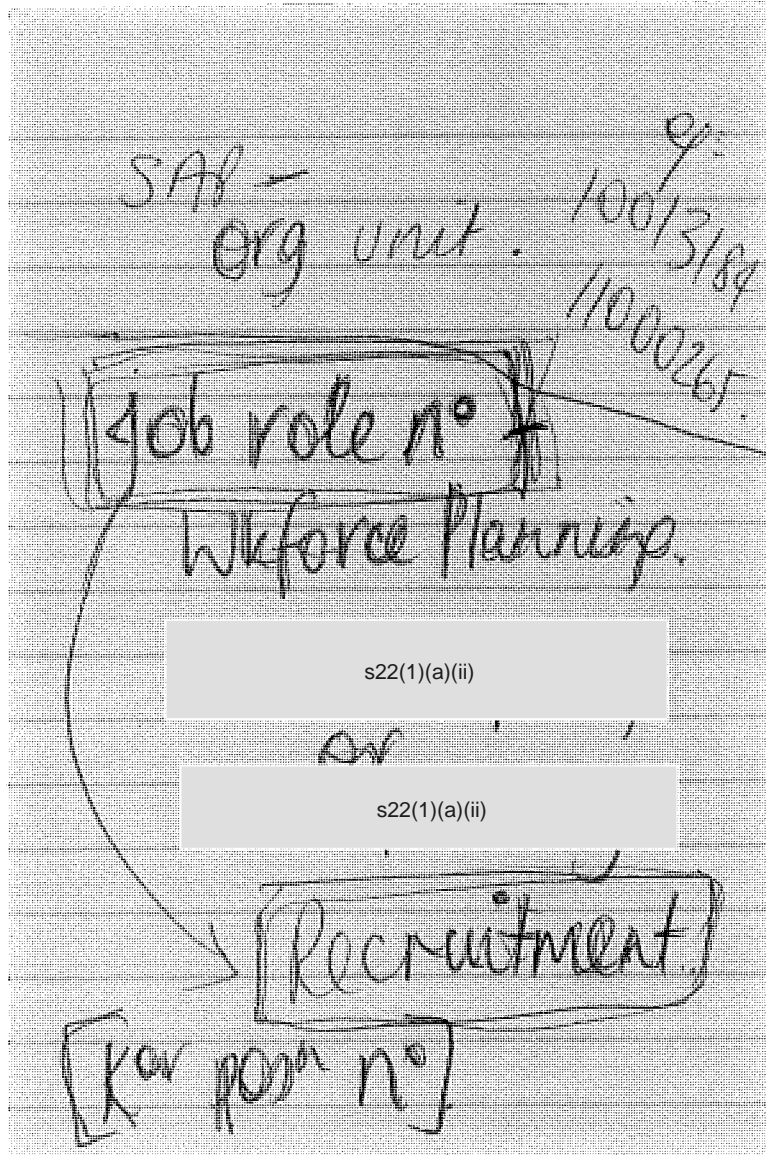 SAP –
org unit.
eg:
10013184
11000265.
Job role nº
Wkforce Planning.
s22(1)(a)(ii)
or
s22(1)(a)(ii)
Recruitment
nº